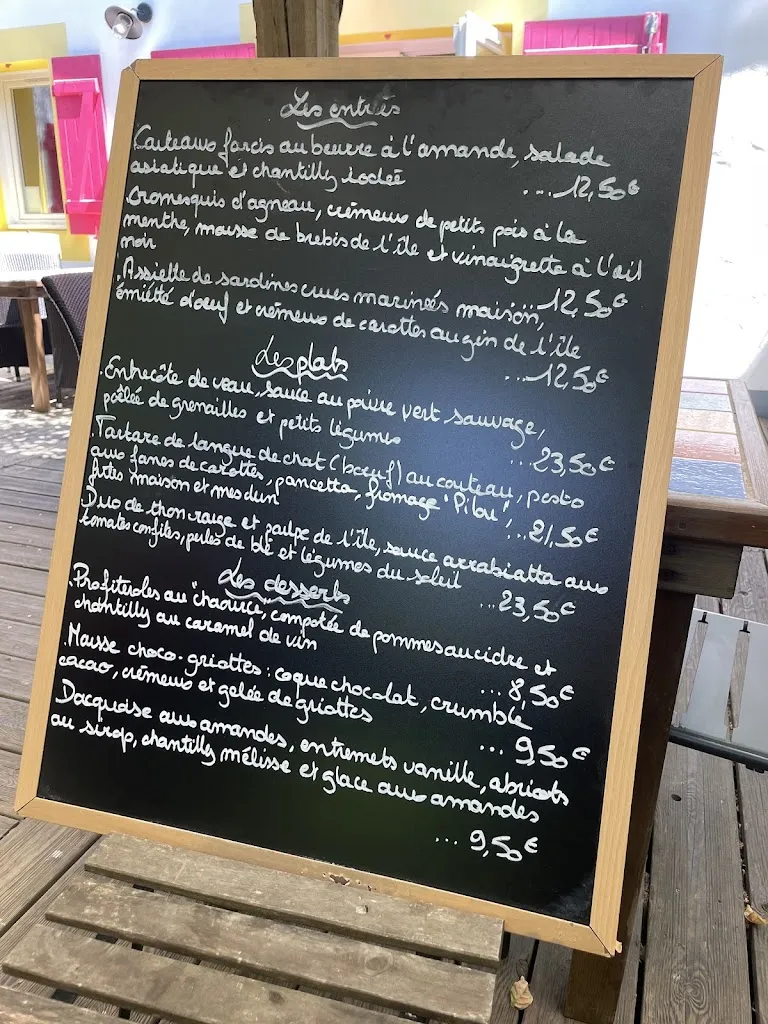 Les entrés
Couteaux farcis au beurre à l'amande, salade
asiatique et chantilly iodée ... 12,50€
.Cromesquis d'agneau, crémeux de petits pois à la
menthe, mousse de brebis de l'île et vinaigrette à l'ail
noir ... 12,50€
.Assiette de sardines crues marinées maison,
émietté d'oeuf et crémeux de carottes au gin de l'île
... 12,50€
Les plats
.Entrecôte de veau, sauce au poivre vert sauvage,
poêlée de grenailles et petits légumes ... 23,50€
.Tartare de langue de chat (boeuf) au couteau, pesto
aux fanes de carottes, pancetta, fromage "Pilou",
frites maison et mesclun ... 21,50€
.Duo de thon rouge et poulpe de l'île, sauce arrabiatta aux
tomates confites, perles de blé et légumes du soleil
... 23,50€
Les desserts
.Profiteroles au chaource, compotée de pommes au cidre et
chantilly au caramel de vin ... 8,50€
.Mousse choco-griottes : coque chocolat, crumble
cacao, crémeux et gelée de griottes ... 9,50€
Dacquoise aux amandes, entremets vanille, abricots
au sirop, chantilly mélisse et glace aux amandes
... 9,50€